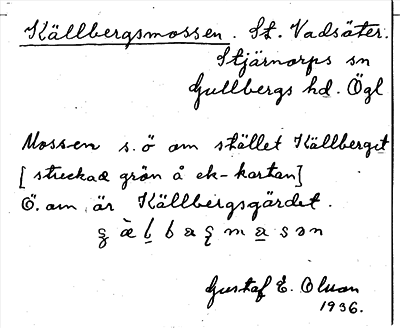 Källbergsmossen. St. Vadsäter.
Stjärnorps sn
Gullbergs hd. Ögl
Mossen s.ö om stället Källberget
[streckad grön å ek-kartan]
Ö. om är Källbergsgärdet.
Gustaf E. Olson
1936.